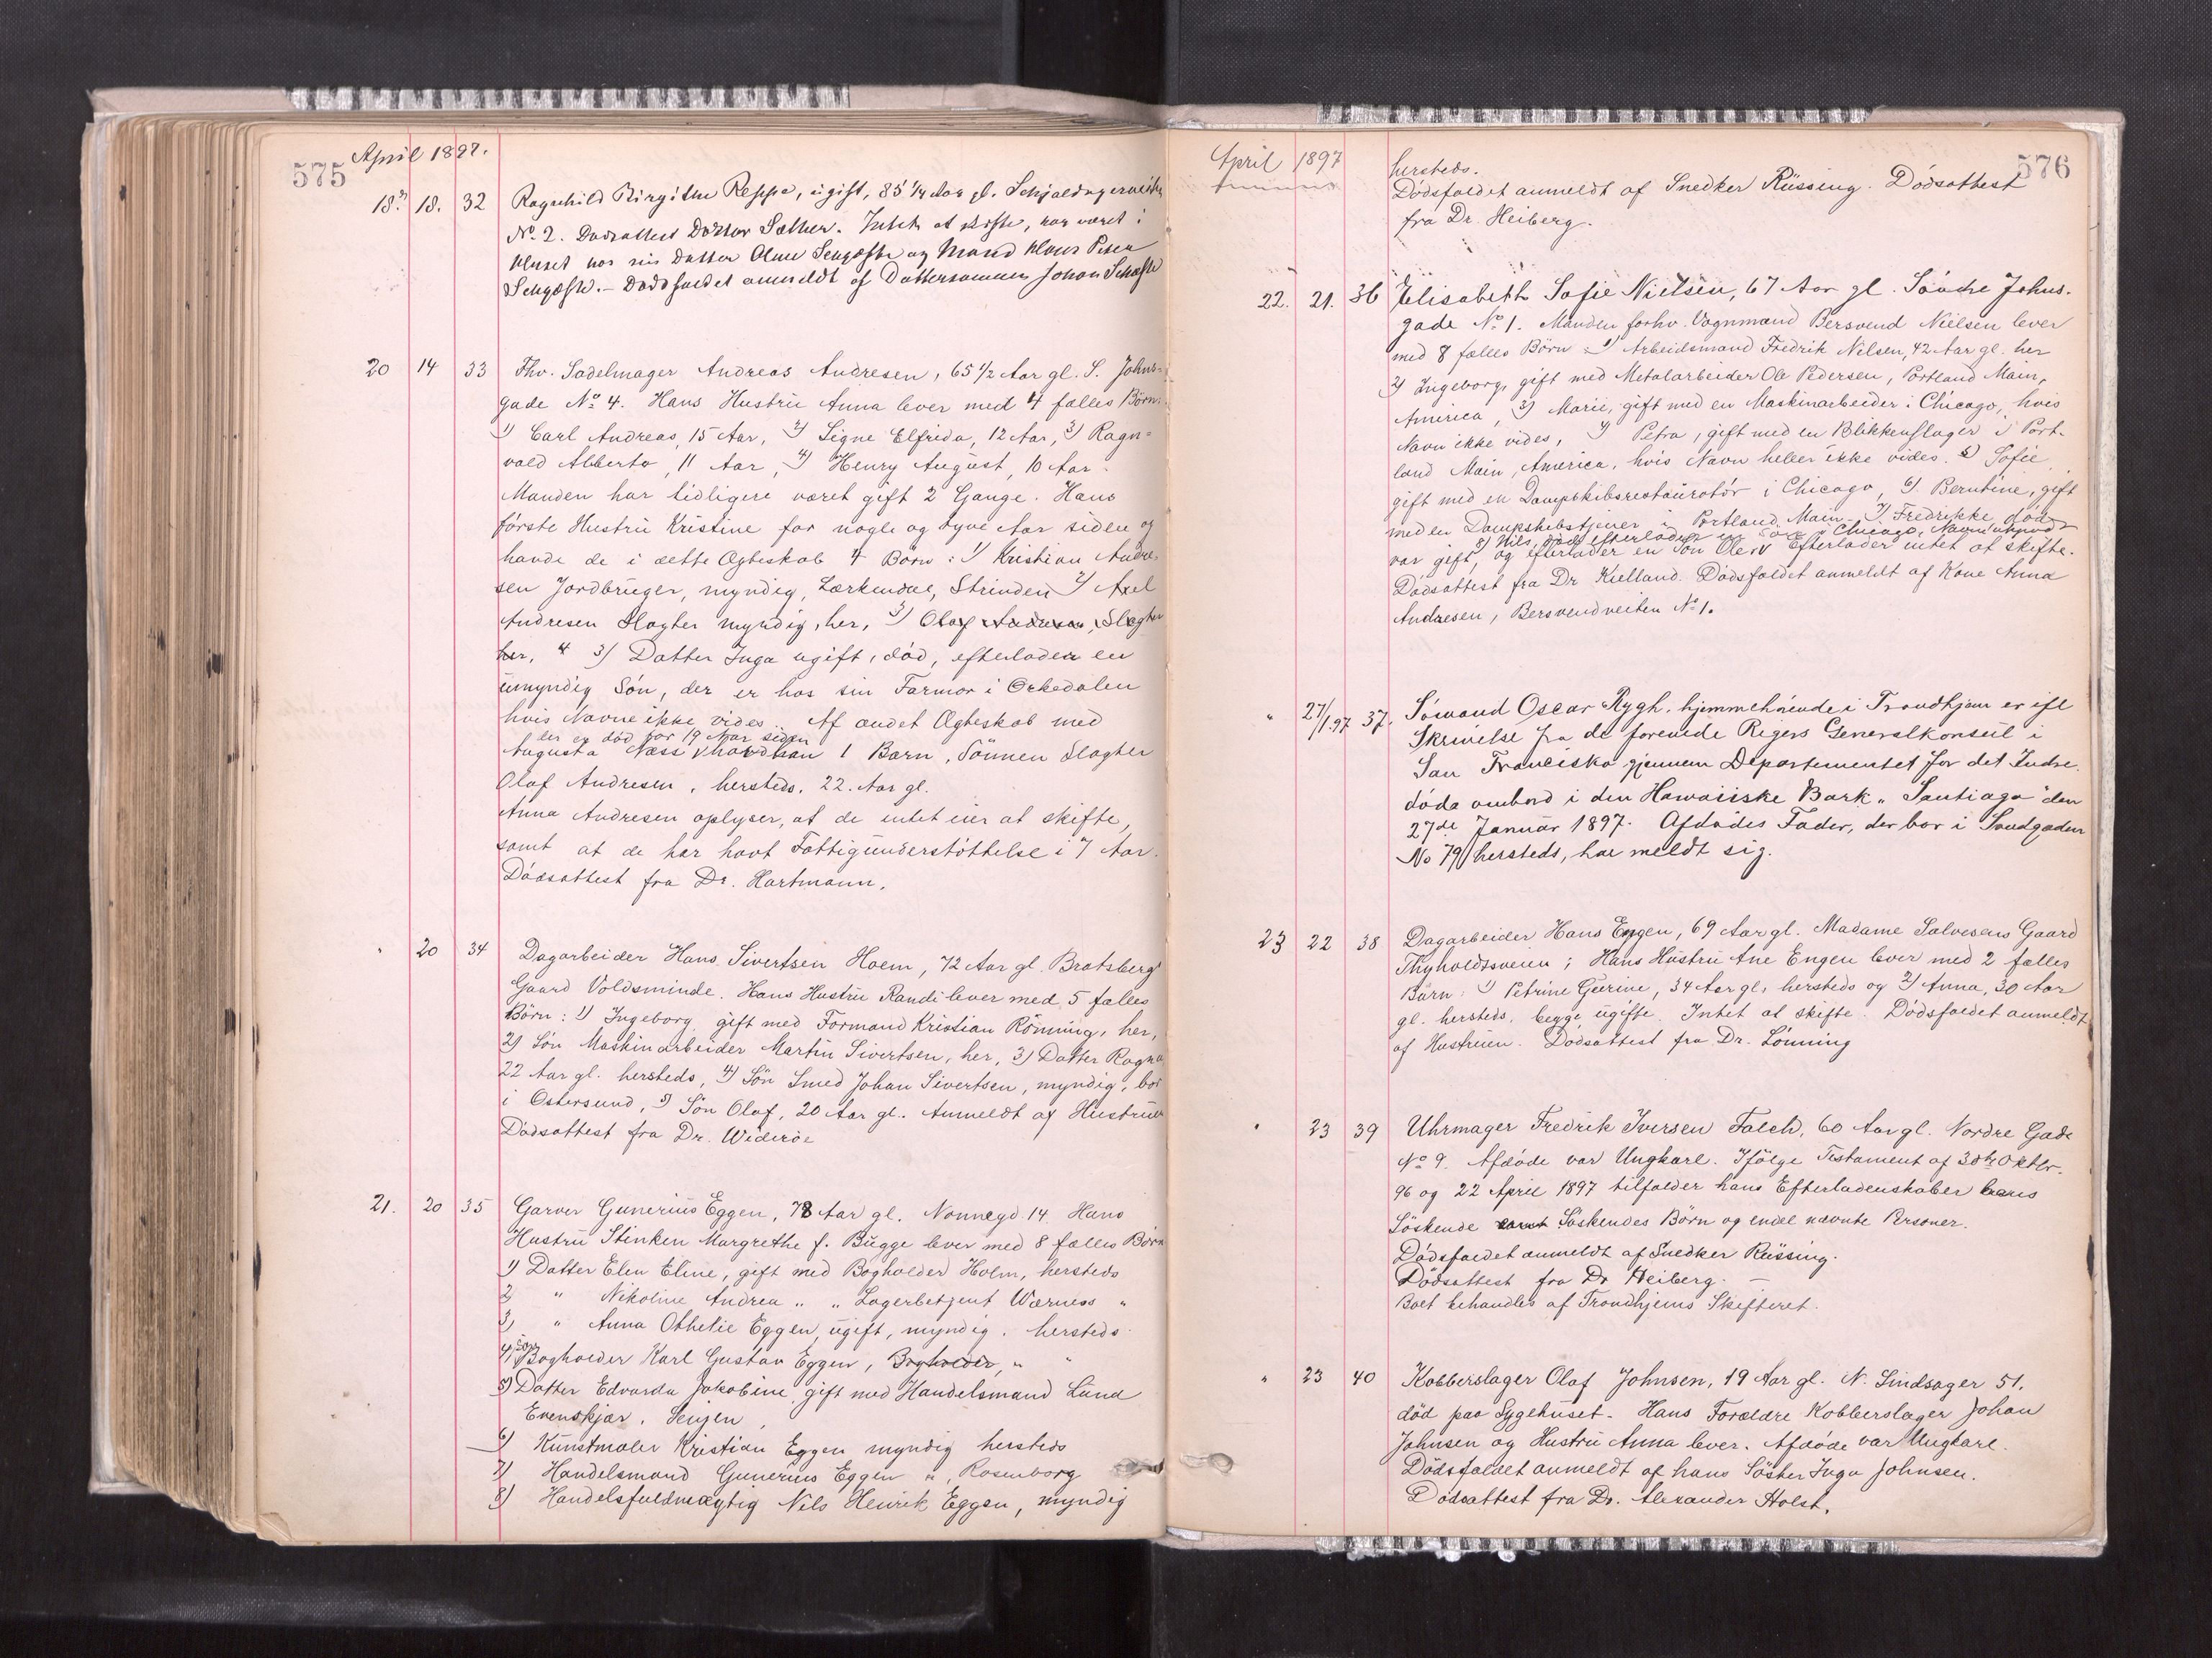 575
April 1897.
18. 18. 32 Ragnhild Birgithe Reppe, ugift, 85 1/4 Aar gl. Schjoldagerveiten
No. 2. Dødsattest Doktor Sæther. Intet at skifte, har været i
Huset hos sin Datter Oline Schjøsthe og Mand Klaus Peter
Dødsfaldet anmeldt af Dattersønnen Johan
20 14 33 Fhv. Sadelmager Andreas Andresen, 65 1/2 Aar gl. S. Johns-
gade No. 4. Hans Hustru Anna lever med 4 fælles Børn:
1) Carl Andreas, 15 Aar, 2) Signe Elfrida, 12 Aar, 3) Ragn-
vald Alberto, 11 Aar, 4) Henry August, 10 Aar.
Manden har tidligere været gift 2 Gange. Hans
første Hustru Kristine for nogle og tyve Aar siden og
havde de i dette Ægteskab 4 Børn: 1) Kristian Andre-
sen Jordbruger, myndig, Lærkendal, Strinden 2) Axel
Andresen Slagter myndig, her, 3) Olaf Andresen, Slagter
her, 4 3) Datter Inga ugift, død, efterladen en
umyndig Søn, der er hos sin Farmor i Orkedalen
hvis Navne ikke vides. Af andet Ægteskab med
der er død for 19 Aar siden
Augusta Næss havd han 1 Barn, Sønnen Slagter
Olaf Andresen, hersteds, 22 Aar gl.
Anna Andresen oplyser, at de intet eier at skifte,
samt at de har havt Fattigunderstøttelse i 7 Aar.
Dødsattest fra Dr. Hartmann.
" 20 34 Dagarbeider Hans Sivertsen Hoem, 72 Aar gl. Bratsberg
Gaard Voldsminde. Hans Hustru Randi lever med 5 fælles
Børn: 1) Ingeborg gift med Formand Kristian Rønning, her,
2) Søn Maskinarbeider Martin Sivertsen, her, 3) Datter Ragna
22 Aar gl. hersteds, 4) Søn Smed Johan Sivertsen, myndig, bor
i Østersund, 5) Søn Olaf, 20 Aar gl. Anmeldt af Hustruen
Dødsattest fra Dr. Widerøe
21. 20 35 Garver Gunerius Eggen, 78 Aar gl. Nonnegd. 14. Hans
Hustru Stinken Margrethe f. Bugge lever med 8 fælles Børn
1) Datter Elen Eline, gift med Bogholder Holm, hersteds
2) " Nikoline Andrea " " Lagerbetjent Wærness "
3) " Anna Othelie Eggen, ugift, myndig, hersteds
4) Søn Bogholder Karl Gustav Eggen, Bogholder, " "
5) Datter Edvarda Jakobine, gift med Handelsmand Lund
Evenskjær, Senjen
6) Kunstmaler Kristian Eggen myndig hersteds
7) Handelsmand Gunerius Eggen ", Rosenborg
8) Handelsfuldmægtig Nils Henrik Eggen, myndig
April 1897
576
hersteds.
Dødsfaldet anmeldt af Snedker Rüssing. Dødsattest
fra Dr. Heiberg.
22. 21. 36 Elisabeth Sofie Nielsen, 67 Aar gl. Søndre Johns-
gade No. 1. Manden forhv. Vognmand Bersvend Nielsen lever
med 8 fælles Børn: 1) Arbeidsmand Fredrik Nilsen, 42 Aar gl. her
2) Ingeborg, gift med Metalarbeider Ole Pedersen, Portland Main,
America, 3) Marie, gift med en Maskinarbeider i Chicago, hvis
Navn ikke vides, 4) Petra, gift med en Blikkenslager i Port-
land Main, America, hvis Navn heller ikke vides. 5) Sofie
gift med en Dampskibsrestauratør i Chicago, 6) Berntine, gift
med en Dampskibstjener i Portland Main. 7) Fredrikke død
8) Nils, død efterlader en Søn i Chicago, Navn
var gift, og efterlader en Søn Ole. Efterlader intet at skifte.
Dødsattest fra Dr. Kielland. Dødsfaldet anmeldt af Kone Anna
Andresen, Bersvendveiten No. 1.
" 27/1.97 37. Sømand Oscar Rygh, hjemmehørende i Trondhjem er ifl
Skrivelse fra de forenede Rigers Generalkonsul i
San Francisko gjennem Departementet for det Indre.
døde ombord i den Hawaiiske Bark "Santiago" den
27de Januar 1897. Afdødes Fader, der bor i
No 79 hersteds, har meldt sig.
23 22 38 Dagarbeider Hans Engen, 69 Aar gl. Madame Salvesens Gaard
Thyholdtsveien; Hans Hustru Ane Engen lever med 2 fælles
Børn: 1) Petrine Gurine, 34 Aar gl, hersteds og 2) Anna, 30 Aar
gl. hersteds, begge ugifte. Intet at skifte. Dødsfaldet anmeldt
af Hustruen. Dødsattest fra Dr. Lønning
" 23 39 Uhrmager Fredrik Iversen Falch, 60 Aar gl. Nordre Gade
No. 9. Afdøde var Ungkarl. Ifølge Testament af 30te Oktbr.
96 og 22 April 1897 tilfalder hans Efterladenskaber hans
Søskende samt Søskendes Børn og endel nævnte Personer.
Dødsfaldet anmeldt af Snedker Rüssing.
Dødsattest fra Dr Heiberg. —
Boet behandles af Trondhjems Skifteret.
" 23 40 Kobberslager Olaf Johnsen, 19 Aar gl. N. Sindsager 51.
død paa Sygehuset. Hans Forældre Kobberslager Johan
Johnsen og Hustru Anna lever. Afdøde var Ungkarl.
Dødsfaldet anmeldt af hans Søster Inga Johnsen.
Dødsattest fra Dr. Alexander Holst.